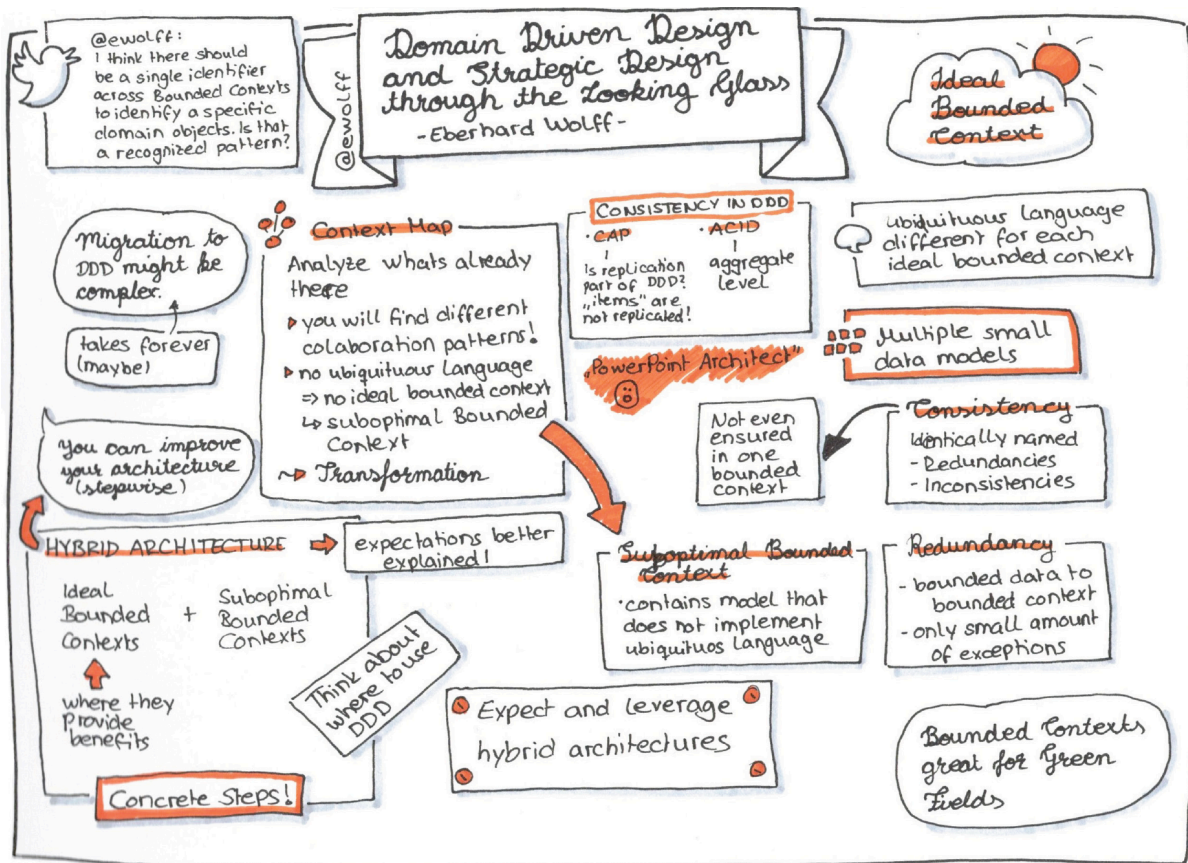 @ewolff:
I think there should
be a single identifier
across Bounded Contexts
to identify a specific
domain objects. Is that
a recognized pattern?
@ewolff
Domain Driven Design
and Strategic Design
through the Looking Glass
- Eberhard Wolff -
Ideal
Bounded
Context
Migration to
DDD might be
complex.
takes forever
(maybe)
You can improve
your architecture
(stepwise)
Context Map
Analyze whats already
there
you will find different
colaboration patterns!
no ubiquituous language
⇒ no ideal bounded context
↳ suboptimal Bounded
Context
Transformation
CONSISTENCY IN DDD
· CAP
Is replication
part of DDD?
„items" are
not replicated!
· ACID
aggregate
level
„PowerPoint Architect"
ubiquituous language
different for each
ideal bounded context
Multiple small
data models
Consistency
Identically named
- Redundancies
- Inconsistencies
Not even
ensured
in one
bounded
context
HYBRID ARCHITECTURE
expectations better
explained!
Ideal
Bounded
Contexts
+
Suboptimal
Bounded
Contexts
where they
provide
benefits
Concrete Steps!
Think about
where to use
DDD
Suboptimal Bounded
Context
· contains model that
does not implement
ubiquituos language
Redundancy
- bounded data to
bounded context
- only small amount
of exceptions
Expect and leverage
hybrid architectures
Bounded Contexts
great for Green
Fields